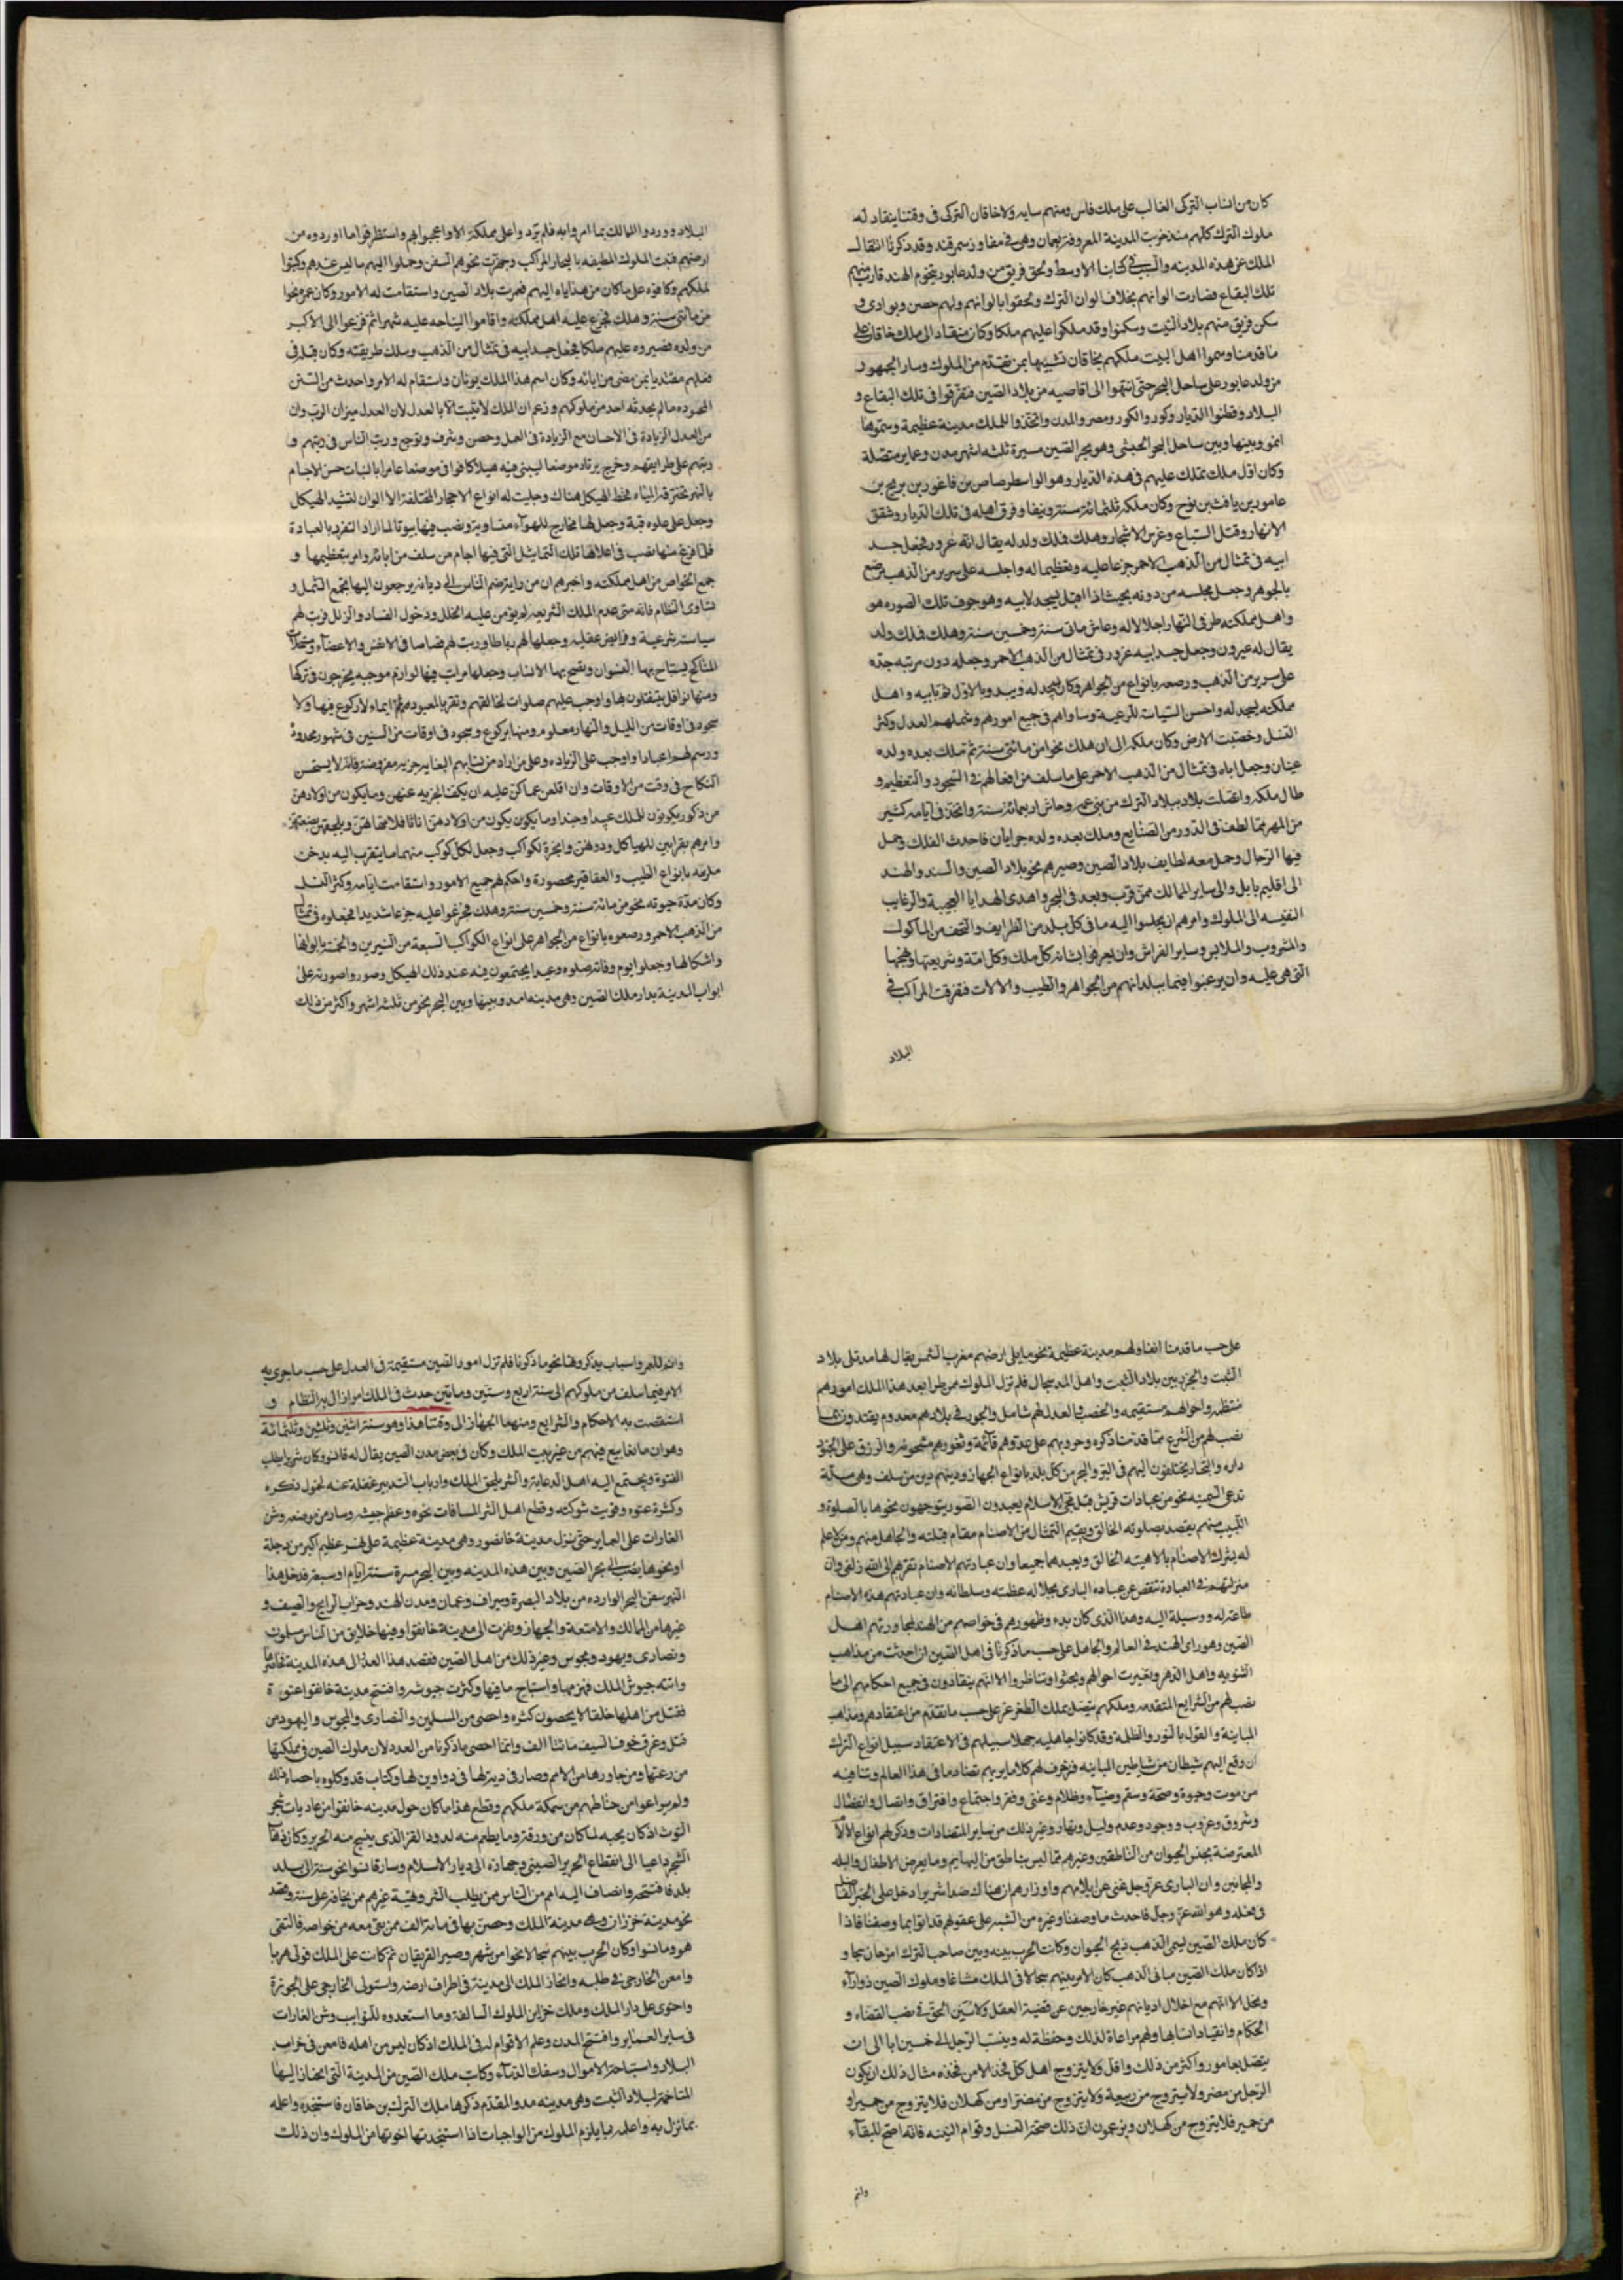 كان من انساب التركى الغالب على ملك فارس ومنهم سايه ولاخاقان التركى فى وقتنا ينقاد له
ملوك الترك كلهم منذ خربت المدينة المعروفة بعمان وهى فى مفاوز سمرقند وقد ذكرنا انتقال
الملك عن هذه المدينه والسبب فى كتابنا الاوسط ولحق فريق من ولد عابور بتخوم الهند قارب منهم
تلك البقاع فصارت الوانهم بخلاف الوان الترك ولحقوا بالوانهم ولهم حصن وبوادى و
سكن فريق منهم بلاد التبت وسكنوا وقد ملكوا عليهم ملكا وكان منقادا الى ملك خاقان على
ما قدمنا وسموا اهل البيت ملكهم بخاقان تشبيها بمن تقدم من الملوك وسار الجمهور
من ولد عابور على ساحل البحر حتى انتهوا الى اقاصيه من بلاد الصين فتفرقوا فى تلك البقاع و
البلاد وقطنوا الديار وكور والكور ومصر والمدن واتخذوا للملك مدينة عظيمة وسموها
انمو وبينها وبين ساحل البحر الحبشى وهو بحر الصين مسيرة ثلثه اشهر مدن وعماير متصلة
وكان اول ملك تملك عليهم فى هذه الديار وهو الواسطرصاص بن فاغور بن بريج بن
عامور بن يافث بن نوح وكان ملكه ثلثمائة سنة ونيفا وفرق اهله فى تلك الديار وشقق
الانهار وقتل السباع وغرس الاشجار وهلك فملك ولد له يقال انه عرور فجعل جسد
ابيه فى تمثال من الذهب الاحمر جزعا عليه وتعظيما له واجلسه على سرير من الذهب مرصع
بالجوهر وجعل مجلسه من دونه بحيث اذا اقبل ليسجد لابيه وهو جوف تلك الصوره هو
واهل مملكته طرفى النهار اجلالا له وعاش ماتى سنة وخمسين سنة وهلك فملك ولد
يقال له عيرون وجعل جسد ابيه عزور فى تمثال من الذهب الاحمر وجعله دون مرتبه جده
على سرير من الذهب ورصعه بانواع من الجواهر وكان يسجد له ويبدو بالاول ثم بابيه واهل
مملكته يسجد له واحسن السياسة للرعية وساواهم فى جميع امورهم وشملهم العدل وكثر
النسل وخصبت الارض وكان ملكه الى ان هلك نحوا من مائتى سنة ثم تملك بعده ولده
عينان وجعل اباه فى تمثال من الذهب الاحمر على ما سلف من افعالهم فى السجود والتعظيم و
طال ملكه واتصلت بلاده ببلاد الترك من بنى عمه وعاش اربعمائة سنة واتخذ فى ايامه كثير
من المهن مما لطف فى الدور من الصنايع وملك بعده ولده حرابان فاحدث الفلك وحمل
فيها الرجال وحمل معه لطايف بلاد الصين وصيرهم نحو بلاد الصين والسند والهند
الى اقليم بابل والى ساير الممالك ممن قرب وبعد فى البحر واهدى الهدايا العجيبة والرغايب
النفيسه الى الملوك وامرهم ان يجلبوا اليه ما فى كل بلد من الظرايف والتحف من الماكول
والمشروب والملابس وساير الفراش وان يعرفوا ابشانه كل ملك وكل امة وشريعتها ونهجها
التى هى عليه وان يرغبوا فيما ببلدانهم من الجواهر والطيب والالات فتفرقت المراكب فى
البلاد
البلاد ووردوا الممالك بما امروا به فلم يرد واعلى مملكة الا واعجبوا بهم واستظرفوا ما اوردوه من
ارضهم فبنت الملوك المطيفه بالبحار المراكب وجهزت نحوهم السفن وحملوا اليهم ما ليس عندهم وكتبوا
لملكهم وكافوه على ما كان من هداياه اليهم فعمرت بلاد الصين واستقامت له الامور وكان عمره نحوا
من مائتى سنة وهلك فجزع عليه اهل مملكته واقاموا النياحه عليه شهرا ثم فزعوا الى الاكبر
من ولده فصيروه عليهم ملكا فجعل جسد ابيه فى تمثال من الذهب وسلك طريقته وكان قبله فى
فعلهم مقتديا بمن مضى من ابائه وكان اسم هذا الملك يونان واستقام له الامر واحدث من السنن
المحموده ما لم يحدثه احد من ملوكهم وزعم ان الملك لا يثبت الا بالعدل لان العدل ميزان الرب وان
من العدل الزيادة فى الاحسان مع الزيادة فى العمل وحصن وشرف وتوج ورتب الناس فى رتبهم و
رتبهم على طرايقهم وخرج يرتاد موضعا ليبنى فيه هيكلا فوافى موضعا عامرا بالنبات حسن الاجام
بالنهر تخترقه المياه فخط الهيكل هناك وجلبت له انواع الاحجار المختلفة الالوان فشيد الهيكل
وجعل على علوه قبة وجعل لها مخارج للهواء متساوية ونصب فيها بيوتا لما اراد التفرد بالعبادة
فلما فرغ منها نصب فى اعلاها تلك التماثيل التى فيها اجسام من سلف من ابائه وامر بتعظيمها و
جمع الخواص من اهل مملكته واخبرهم ان من رايه ضم الناس الى ديانة يرجعون اليها لجمع الشمل و
تساوى النظام فانه متى عدم الملك الشريعه لم يؤمن عليه الخلل ودخول الفساد والزلل فرتب لهم
سياسة شرعية وفرايض عقلية وجعلها لهم رباطا ورتب لهم قصاصا فى الانفس والاعضاء ومستحلات
المناكح يستباح بها النسوان وتصح بها الانساب وجعلها مراتب فمنها لوازم موجبه يخرجون فى تركها
ومنها نوافل يتنفلون بها واوجب عليهم صلوات لخالقهم وتقربا لمعبودهم ايماء لا ركوع فيها ولا
سجود فى اوقات من الليل والنهار معلومه ومنها بركوع وسجود فى اوقات من السنين فى شهور محدودة
ورسم لهم اعيادا واوجب على الزناه
النكاح فى وقت من الاوقات وان اقلعن عما كن عليه ان يكف الجزيه عنهن وما يكون من اولادهن
من ذكور يكونون للملك عبيدا وجندا وما يكون من اولادهن اناثا فلامهاتهن ويلحقن بصنعتهن
وامرهم بقرابين للهياكل ودخن وابخرة للكواكب وجعل لكل كوكب منهما ما يتقرب اليه بدخن
معلومه بانواع الطيب والعقاقير محصورة واحكم لهم جميع الامور واستقامت ايامه وكثر النسل
وكان مدة حيوته نحو من مائة سنة وخمسين سنة وهلك فجزعوا عليه جزعا شديدا فجعلوه فى تمثال
من الذهب الاحمر ورصعوه بانواع من الجواهر على انواع الكواكب السبعة من النيرين والخمسة بالوانها
واشكالها وجعلوا يوم وفاته صلوه وعيدا يجتمعون فيه عند ذلك الهيكل وصوروا صورته على
ابواب المدينة بدار ملك الصين وهى مدينه امد وبينها وبين البحر نحو من ثلثة اشهر واكثر من ذلك
على حسب ما قدمنا انفا ولهم مدينة عظيمة نحو ما يلى ارضهم مغرب الشمس يقال لها مد تلى بلاد
التبت والحرب بين بلاد التبت واهل المد سجال فلم تزل الملوك ممن طرا بعد هذا الملك امورهم
منتظمه واحوالهم مستقيمه والخصب والعدل لهم شامل والجور فى بلادهم معدوم يقتدون بما
نصب لهم من الشرع مما قدمنا ذكره وحروبهم على عدوهم قائمة وثغورهم مشحونه والرزق على الجنود
داره والتجار يختلفون اليهم فى البر والبحر من كل بلد بانواع الجهاز ودينهم دين من سلف وهى ملة
تدعى السمنيه نحو من عبادات قريش قبل مجى الاسلام يعبدون الصور يتوجهون نحوها بالصلوة و
اللبيب منهم يقصد بصلوته الخالق ويقيم التمثال من الاصنام مقام قبلته والجاهل منهم ومن لا علم
له يشرك الاصنام بالاهيته الخالق ويعبدهما جميعا وان عبادتهم الاصنام تقربهم الى الله زلفى وان
منزلتهم فى العبادة تنقص عن عباده البارى بجلاله عظمته وسلطانه وان عبادتهم هذه الاصنام
طاعة له ووسيلة اليه وهذا الذى كان بدء وظهورهم فى خواصهم من الهند لمجاورتهم اهل
الصين وهو راى الهند فى العالم والجاهل على حسب ما ذكرنا فى اهل الصين ان احدثت من مذاهب
الثنويه واهل الدهر وتغيرت احوالهم وبحثوا وتناظروا الا انهم ينقادون فى جميع احكامهم الى ما
نصب لهم من الشرايع المتقدمه وملكهم يتصل بملك الطغرغر على حسب ما تقدم من اعتقادهم ومذاهب
المانيه والقول بالنور والظلمة وقد كانوا جاهلية جهلا سبيلهم فى الاعتقاد سبيل انواع الترك
ان وقع اليهم شيطان من شياطين المانيه فزخرف لهم كلاما يريهم تضاد ما فى هذا العالم وتنافيه
من موت وحيوة وصحة وسقم وضياء وظلام وغنى وفقر واجتماع وافتراق واتصال وانفصال
وشروق وغروب ووجود وعدم وليل ونهار وغير ذلك من ساير المتضادات وذكر لهم انواع الالام
المعترضة بجنس الحيوان من الناطقين وغيرهم مما ليس بناطق من البهايم وما يعرض الاطفال والبله
والمجانين وان البارى عز وجل غنى عن ايلامهم واراهم ان هناك ضدا شريرا دخل على الخير الفاضل
فى فعله وهو الله عز وجل فاحدث ما وصفنا وغيره من الشبه على عقولهم فدانوا بما وصفنا فاذا
كان ملك الصين يسمى الذهب ذبح الحيوان وكانت الحرب بينه وبين صاحب الترك
اذا كان ملك الصين مانى الذهب كان الامر بينهم سجالا فى الملك مشاعا وملوك الصين ذو اراء
ونحل الا انهم مع اخلال اديانهم غير خارجين عن قضية العقل وسنن الحق فى نصب القضاء و
الحكام وانقياد وهم مراعاة لذلك وحفظة له وينتسب الرجل الى خمسين ابا الى ان
يتصل بعامور واكثر من ذلك واقل ولا يتزوج اهل كل فخذ الا من فخذه مثال ذلك ان يكون
الرجل من مضر ولا يتزوج من ربيعة ولا يتزوج من مضر او من كهلان فلا يتزوج من حمير او
من حمير فلا يتزوج من كهلان ويزعمون ان ذلك صحة النسل وقوام البنيه فانه اصح للبقاء
واتم
واتم للعمر واسباب يذكروها نحو ما ذكرنا فلم تزل امور الصين مستقيمة فى العدل على حسب ما جرى به
الامر فيما سلف من ملوكهم الى سنة اربع وستين وماتين حدث فى الملك امر ازال به النظام و
انتقصت به الاحكام والشرايع ومنع من الجهاز الى وقتنا هذا وهو سنة اثنين وثلثين وثلثمائة
وهو ان نابغا نبغ فيهم من غير بيت الملك وكان فى بعض مدن الصين يقال له فانو وكان شريرا يطلب
الفتوة ويجتمع اليه اهل الدعارة والشر فلحق الملك وارباب التدبير غفلة عنه لخمول ذكره
وكثرة عتوه وقويت شوكته وقطع اهل الشر المسافات نحوه وعظم جيشه وسار من موضعه وشن
الغارات على العماير حتى نزل مدينة خانصور وهى مدينة عظيمة على نهر عظيم اكبر من دجلة
او نحوها يصب الى بحر الصين وبين هذه المدينه وبين البحر مسيرة ستة ايام او سبعة فدخل هذا
النهر سفن البحر الوارده من بلاد البصرة وسيراف وعمان ومدن الهند وجزاير الزابج والصنف و
غيرها من الممالك والامتعة والجهاز وتقرب الى مدينة خانقوا وفيها خلايق من الناس مسلمون
ونصارى ويهود ومجوس وغير ذلك من اهل الصين فقصد هذا العدو الى هذه المدينة فحاصرها
واتته جيوش الملك فهزمها واستباح ما فيها وكثرت جيوشه وافتتح مدينة خانقوا عنوة
فقتل من اهلها خلقا لا يحصون كثره واحصى من المسلمين والنصارى والمجوس واليهود من
قتل وغرق خوف السيف مائتا الف وانما احصى ما ذكرنا من العدد لان ملوك الصين فى مملكتها
من رعيتها ومن جاورها من الامم وصار فى ذمتها فى دواوين لها وكتاب قد وكلوه باحصاء ذلك
ولم يراعوا من حناطهم من سمكة ملكهم وقطع هذا ما كان حول مدينه خانقوا من غابات شجر
التوت اذ كان يحبه لما كان من ورقه وما يطعم منه لدود القز الذى ينتج منه الحرير وكان ذهاب
الشجر داعيا الى انقطاع الحرير الصينى وجهازه الى ديار الاسلام وسار فانوا بجيوشه الى بلد
بلد فافتتحه وانضاف اليه امم من الناس ممن يطلب الشر وغيرهم ممن يخاف على نفسه وقصد
نحو مدينة خزران وهى مدينه الملك وحصن بها فى مائة الف ممن بقى معه من خواصه فالتقى
هو وفانوا وكان الحرب بينهم سجالا نحوا من شهر وصبر الفريقان ثم كانت على الملك فولى هربا
وامعن الخارجى فى طلبه وانحاز الملك الى مدينة فى اطراف ارضه واستولى الخارجى على الحوزة
واحتوى على دار الملك وملك خزاين الملوك السالفة وما استعدوه للنوايب وشن الغارات
فى ساير العماير وافتتح المدن وعلم الاقوام له فى الملك اذ كان ليس من اهله فامعن فى خراب
البلاد واستباحة الاموال وسفك الدماء وكاتب ملك الصين من المدينة التى انحاز اليها
المتاخمة لبلاد التبت وهى مدينه مد والمقدم ذكرها ملك الترك بن خاقان فاستنجده واعلمه
بما نزل به واعلمه بما يلزم الملوك من الواجبات اذا استنجدتها اخوتها من الملوك وان ذلك